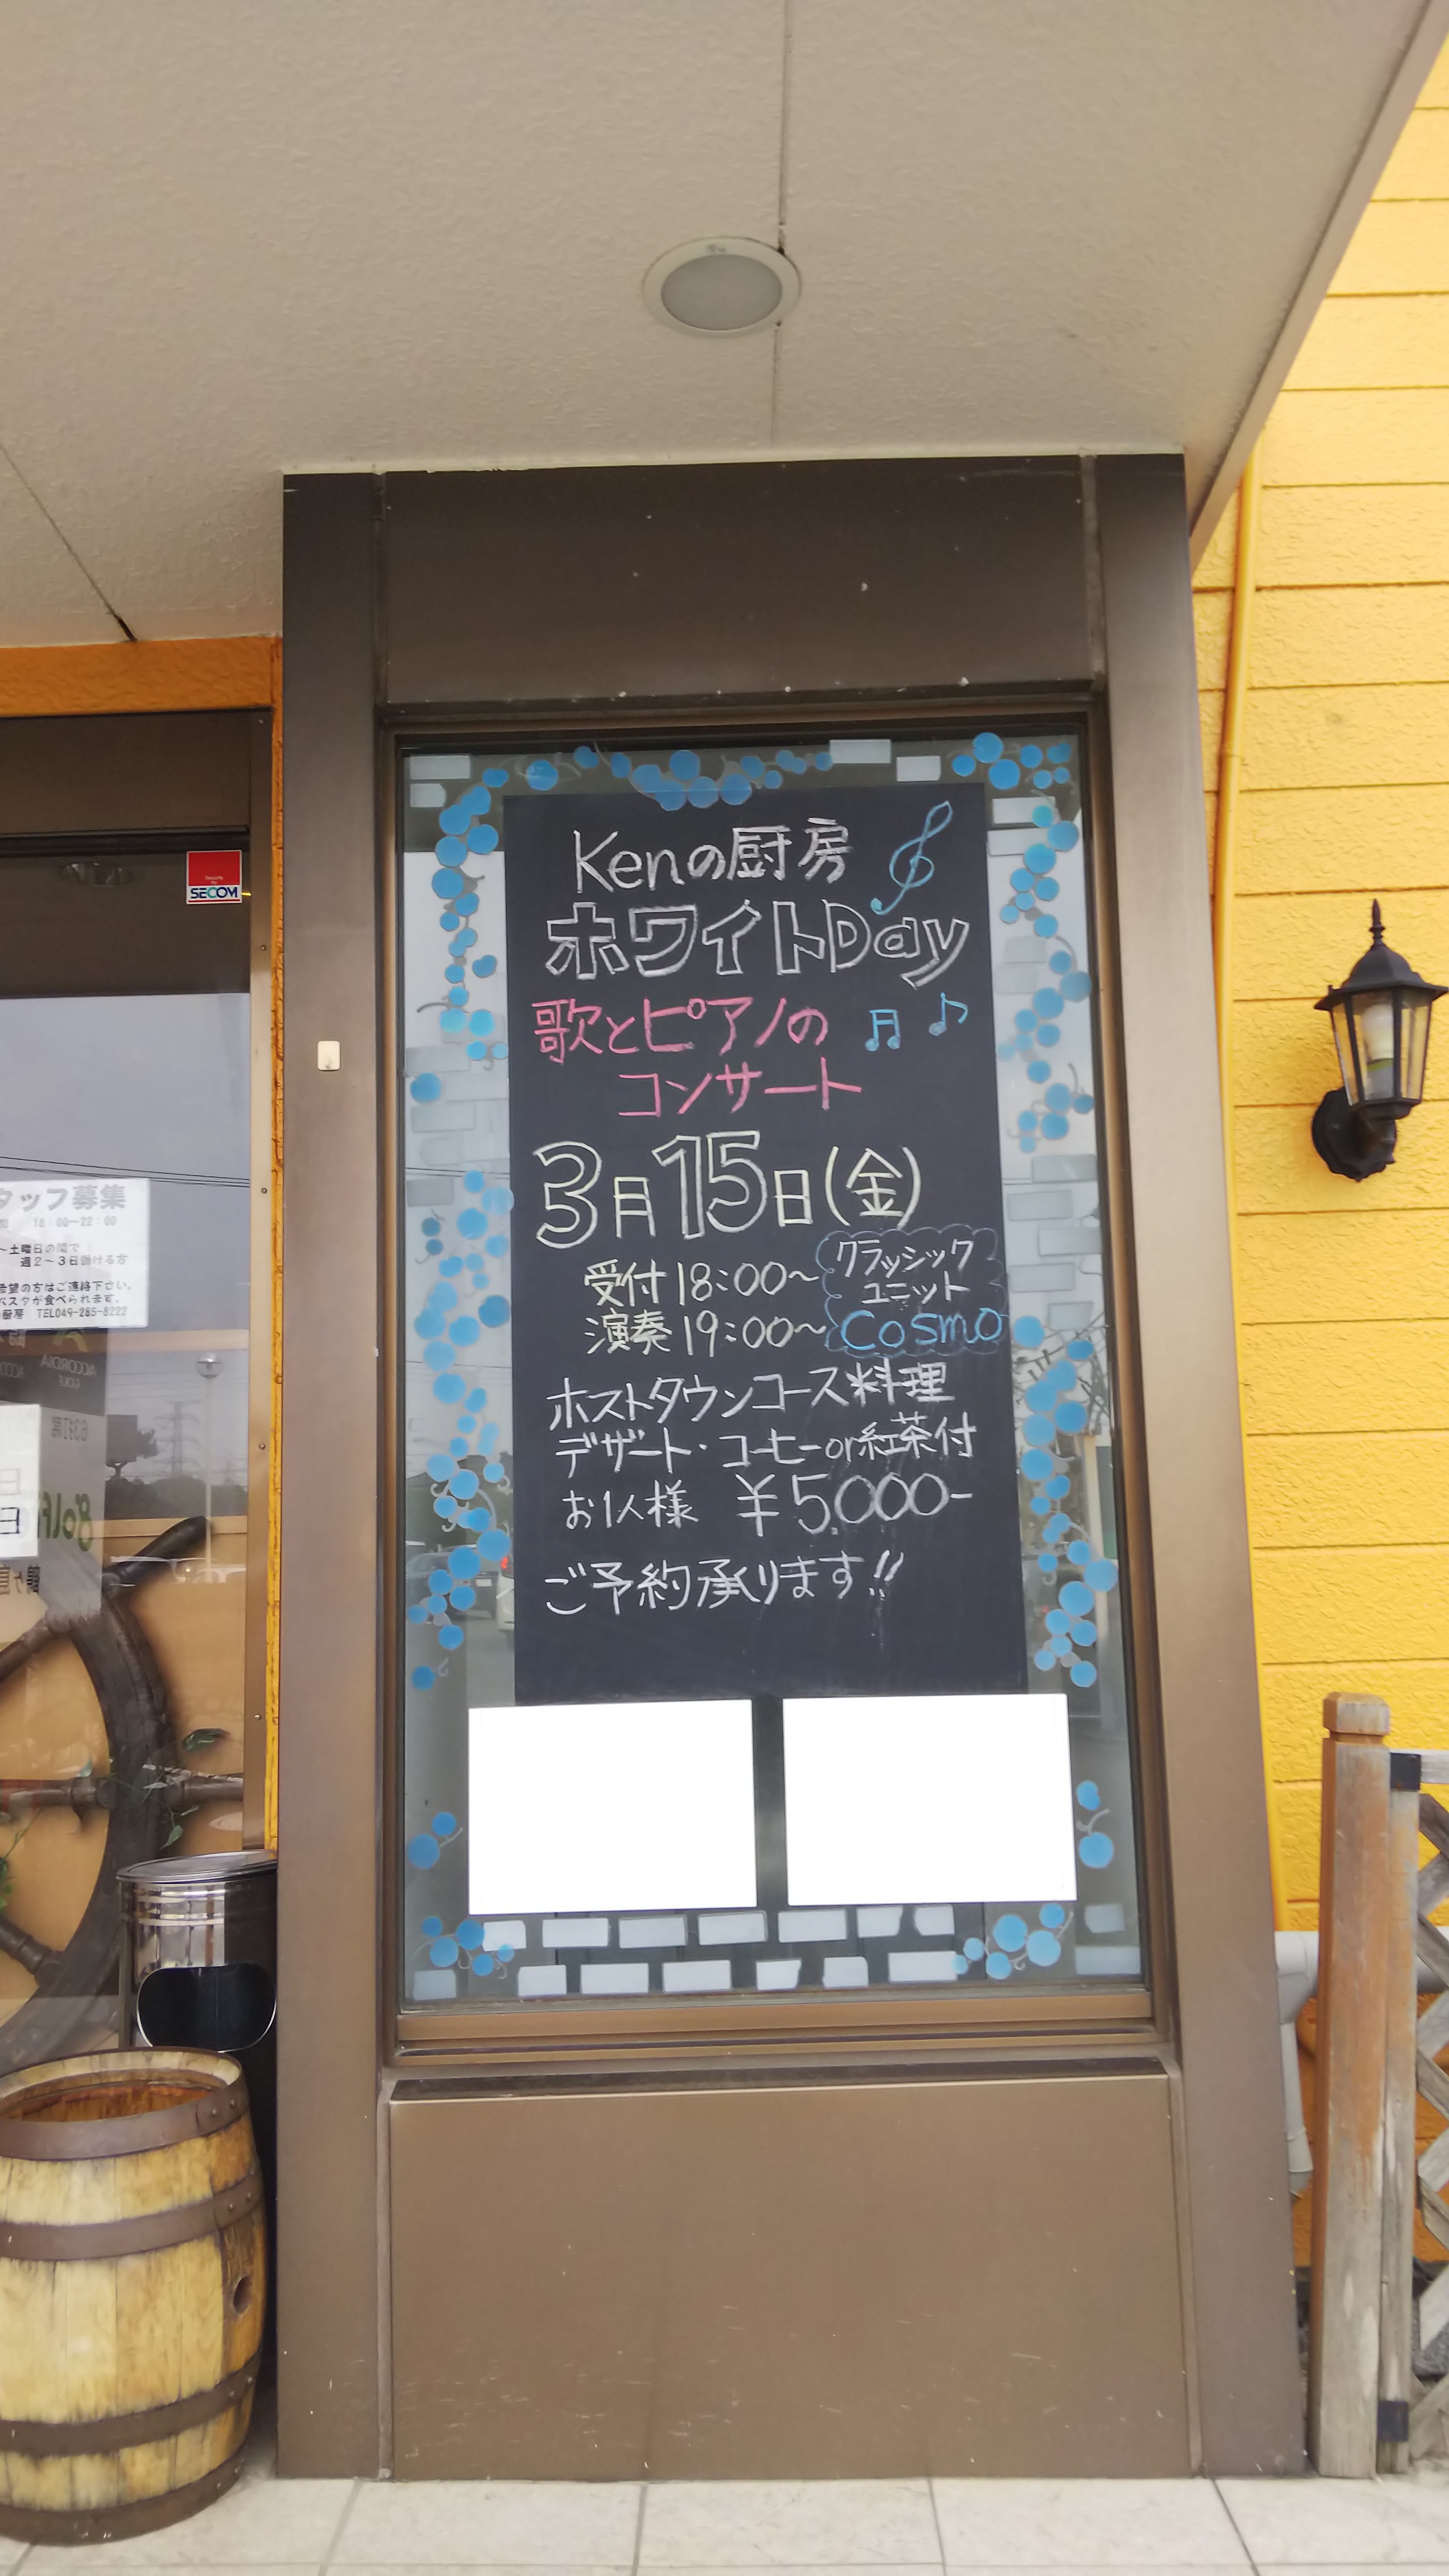 Kenの厨房
ホワイトDay
歌とピアノの
コンサート
3月15日(金)
受付18:00〜
演奏19:00〜
クラッシック
ユニット
Cosmo
ホストタウンコース料理
デザート・コーヒーor紅茶付
お1人様 ¥5,000-
ご予約承ります!!
SECOM
タッフ募集
18:00〜22:00
〜土曜日の間で
週2〜3日働ける方
希望の方はご連絡下さい。
パスタが食べられます。
厨房 TEL049-285-8222
ACCORDIA
GOLF
golf
63打席